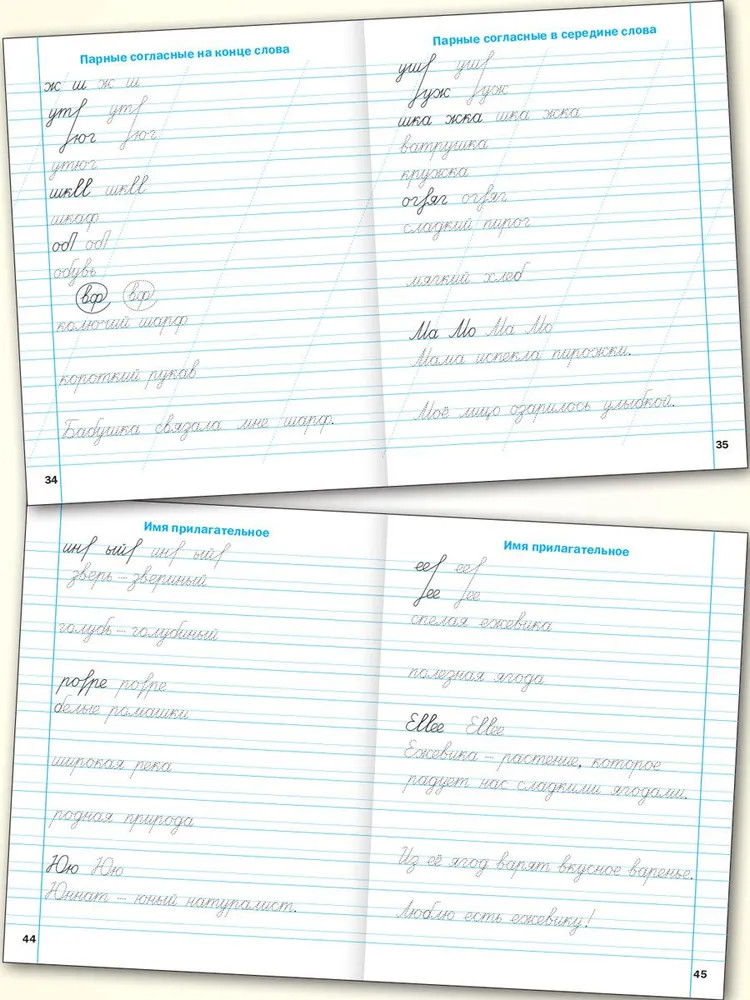 Парные согласные на конце слова
ж ш ж ш
ут ут
юг юг
утюг
шк шк
шкаф
об об
обувь
вф вф
колючий шарф
короткий рукав
Бабушка связала мне шарф.
34
Парные согласные в середине слова
уш уш
уж уж
шка жка шка жка
ватрушка
кружка
сладкий пирог
мягкий хлеб
Ма Мо Ма Мо
Мама испекла пирожки.
Моё лицо озарилось улыбкой.
35
Имя прилагательное
ин ый ин ый
зверь – звериный
голубь – голубиный
ро ре ро ре
белые ромашки
широкая река
родная природа
Юю Юю
Юннат – юный натуралист.
44
Имя прилагательное
ее ее
ее ее
спелая ежевика
полезная ягода
Ежевика – растение, которое
радует нас сладкими ягодами.
Из её ягод варят вкусное варенье.
Люблю есть ежевику!
45